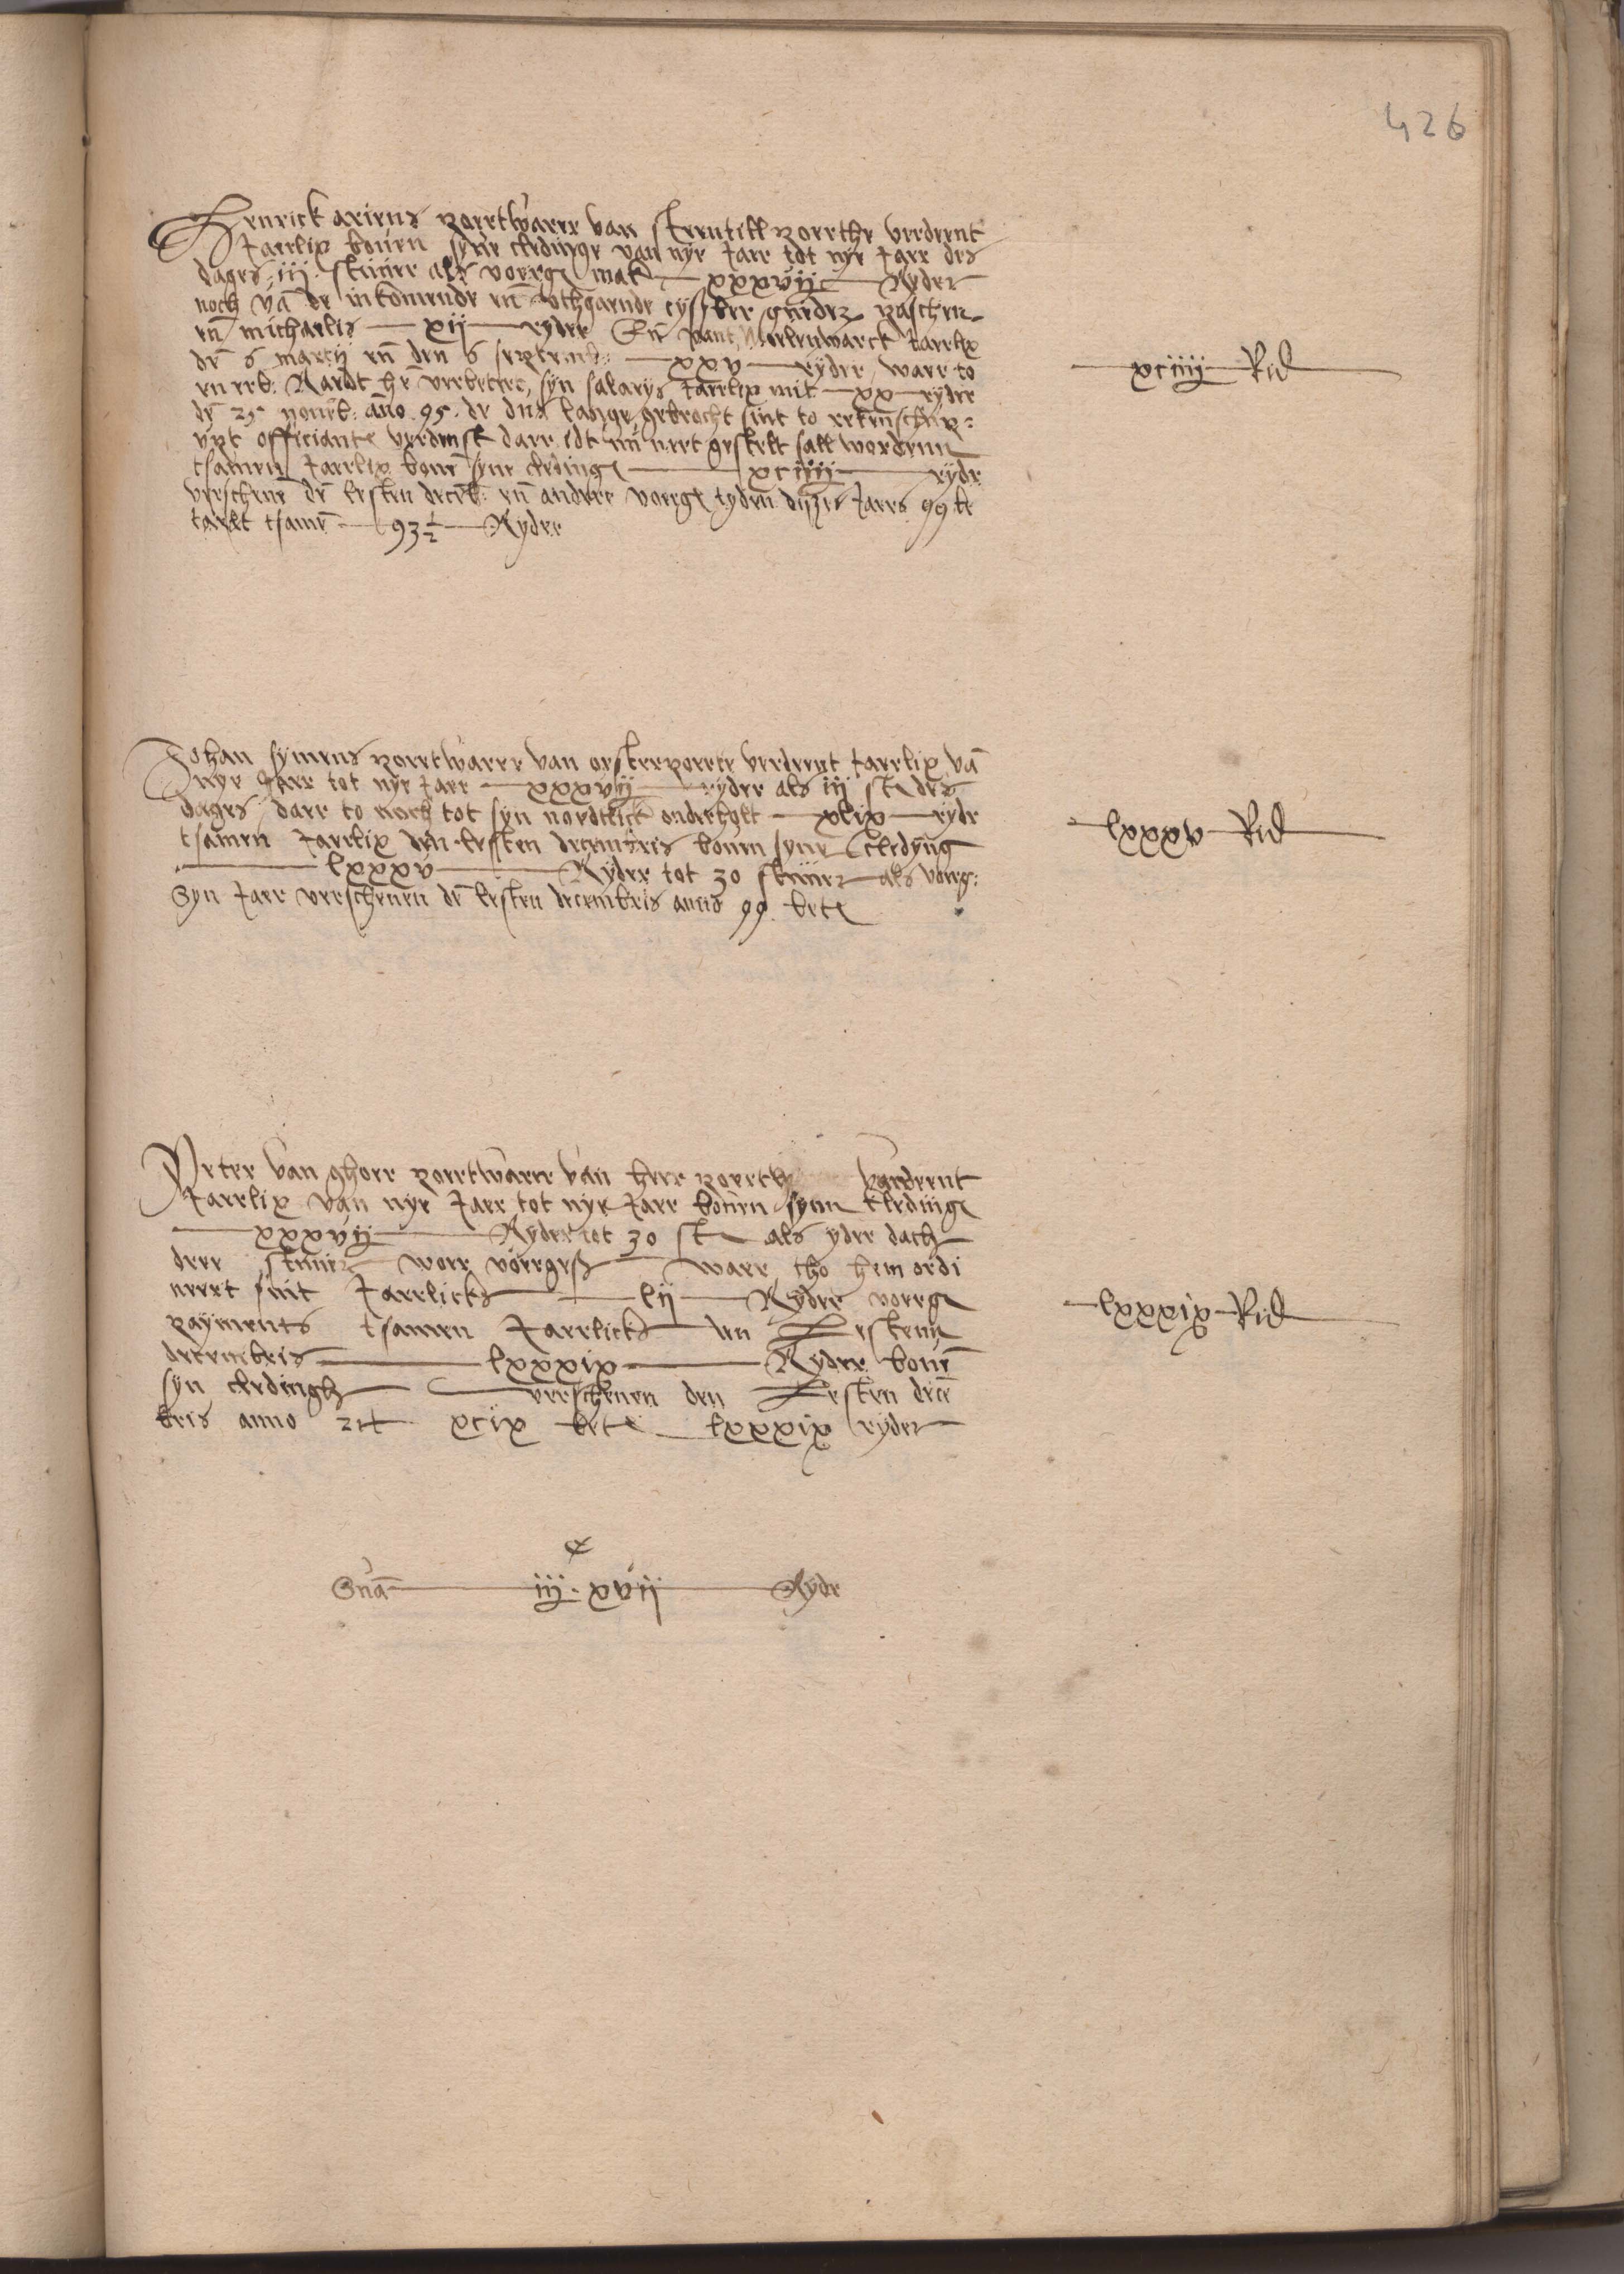 426
Henrick ariens poertwarer van steentill poerthe verdeent
Jaerlix boven syne cledinge van nye Jaer tot nye Jaer des
dages iij stuver als voerg mak xxxvij Ryder
noch vā de inkomende eñ uthgaende cyssber guder paschen
eñ michaelis xij ryder Eñ vant Moelenwarck Jaerlix
dē 6 martij eñ den 6 septemb: xxv ryder waer to
Raedt he verbetert syn salarys Jaerlix mit xx ryder
dē 25 novēb: año 95. de dus lange gebrocht sint to rekenschup:
upt officiante verdinst daer idt nu neet gestelt sall wordenn
tsamen Jaerlix bovē syne cleding xciiij ryde
verschenē dē lesten decēb: eñ andere voerg tyden dijzes Jaers 99 be
taelt tsamē 93 ½ Ryder
xciiij Rid
Johan symens poertwarer van oesterpoerte verdeent Jaerlix vā
nye Jaer tot nye Jaer xxxvij ryder als iij st des
dages daer to noch tot syn nordtlick onderholt xlix ryde
tsamen Jaerlix den lesten decembris boven syne cledyng
lxxxv Ryder tot 30 stuver als voerg:
Syn Jaer verschenen dē lesten decembris anno 99. bet
lxxxv Rid
Peter van ghoer poertwarer van heer poerth verdeent
Jaerlix van nye Jaer tot nye Jaer boven synn kleding
xxxvij Ryder tot 30 st als yder dach
dree stuver woe voergeß waer tho hem ordi
neert sint Jaerlicks lij Ryder voerg
payments tsamen Jaerlicks den Lestenn
decembris lxxxix Ryder bovē
syn cledingh verschenen den Lesten decē
bris anno xcix bet lxxxix ryder
lxxxix Rid
c
Suā iij . xvij Ryde